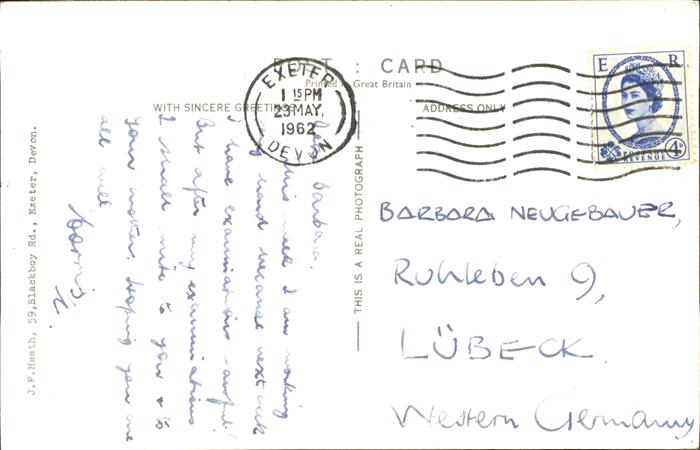 POST : CARD
Printed in Great Britain
WITH SINCERE GREETINGS
ADDRESS ONLY
THIS IS A REAL PHOTOGRAPH
EXETER
1 15 PM
23 MAY,
1962
DEVON
E R
POSTAGE
REVENUE
4D
Dear Barbara.
This week I am working
hard because next week
I have examinations - awful!
But after my examinations
I shall write to you & to
your mother. Hoping you are
all well
J.F.Heath, 59,Blackboy Rd., Exeter, Devon.
BARBARA NEUGEBAUER,
Ruhleben 9,
LÜBECK.
Western Germany